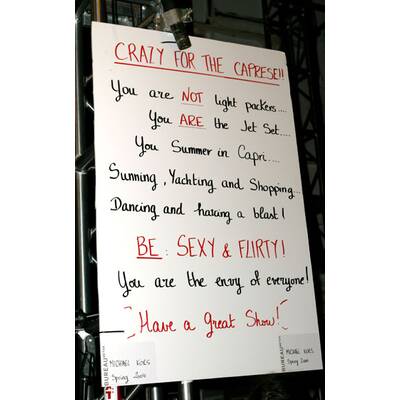 CRAZY FOR THE CAPRESE!!
You are NOT light packers....
You ARE the Jet Set....
You Summer in Capri....
Sunning, Yachting and Shopping...
Dancing and having a blast!
BE: SEXY & FLIRTY!
You are the envy of everyone!
Have a Great Show!
BUREAU
MICHAEL KORS
Spring
BUREAU
MICHAEL KORS
Spring